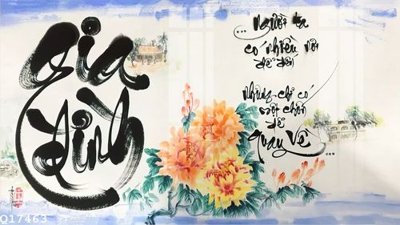 Gia
Đình
... Người ta
có nhiều nơi
để đến
nhưng chỉ có
một chốn
để
quay về ...
Q17463